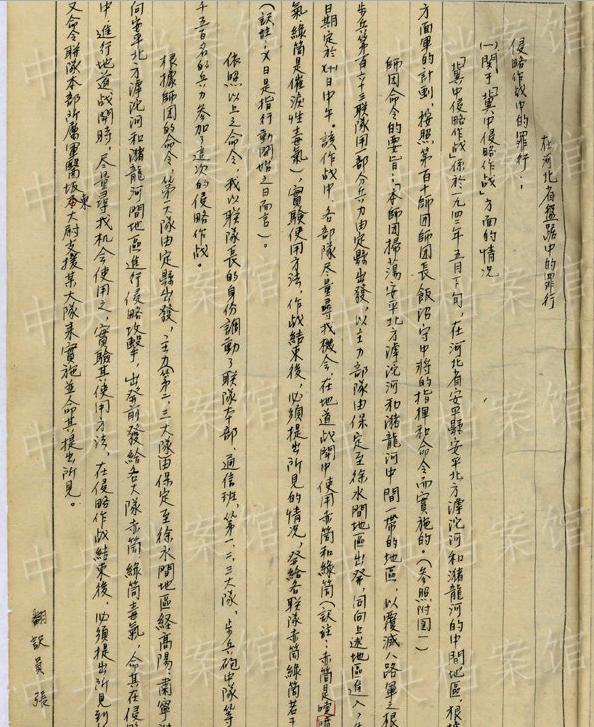 在河北省盤踞中的罪行
侵略作战中的罪行：
(一)関于「冀中侵略作战」方面的情况
「冀中侵略作战」係於一九四二年五月下旬，在河北省安平縣安平北方滹沱河和瀦龍河的中間地區，根据
方面軍的計劃，按照第百十師団師団長飯沼守中將的指揮和命令而實施的。(參照附图一)
師団命令的要旨：「本師団掃蕩安平北方滹沱河和瀦龍河中間一带的地區，以覆滅八路軍之根
步兵第百六十三联隊用部分兵力由定縣出發，以主力部隊由保定至徐水間地區出發，同向上述地區進入，
日期定於X日中午。該作战中，各部隊尽量寻找機会，在地道战鬪中使用赤筒和綠筒(訳註：赤筒是噴嚏
氣綠筒是催淚性毒氣)，實驗使用方法，作战結束後，必須提出所見的情况，發給各联隊赤筒綠筒若干
(訳註：X日是指行動開始之日而言)。
依照以上之命令，我以联隊長的身份調動了联隊本部、通信班、第一、二、三大隊、步兵砲中隊等
千五百名的兵力參加了這次的侵略作战。
根據師団的命令，第一大隊由定縣出發，主力第二、三大隊由保定至徐水間地區経高陽、肅寧
向安平北方滹沱河和瀦龍河間地區進行侵略攻擊，出發前發給各大隊赤筒綠筒毒氣，命其在侵略
中，進行地道战鬪時，尽量寻找机会使用之，實驗其使用方法，在侵略作战結束後，必須提出所見到
又命令联隊本部所屬軍醫坂東大尉支援某大隊來實施並命其提出所見。
翻訳員 張